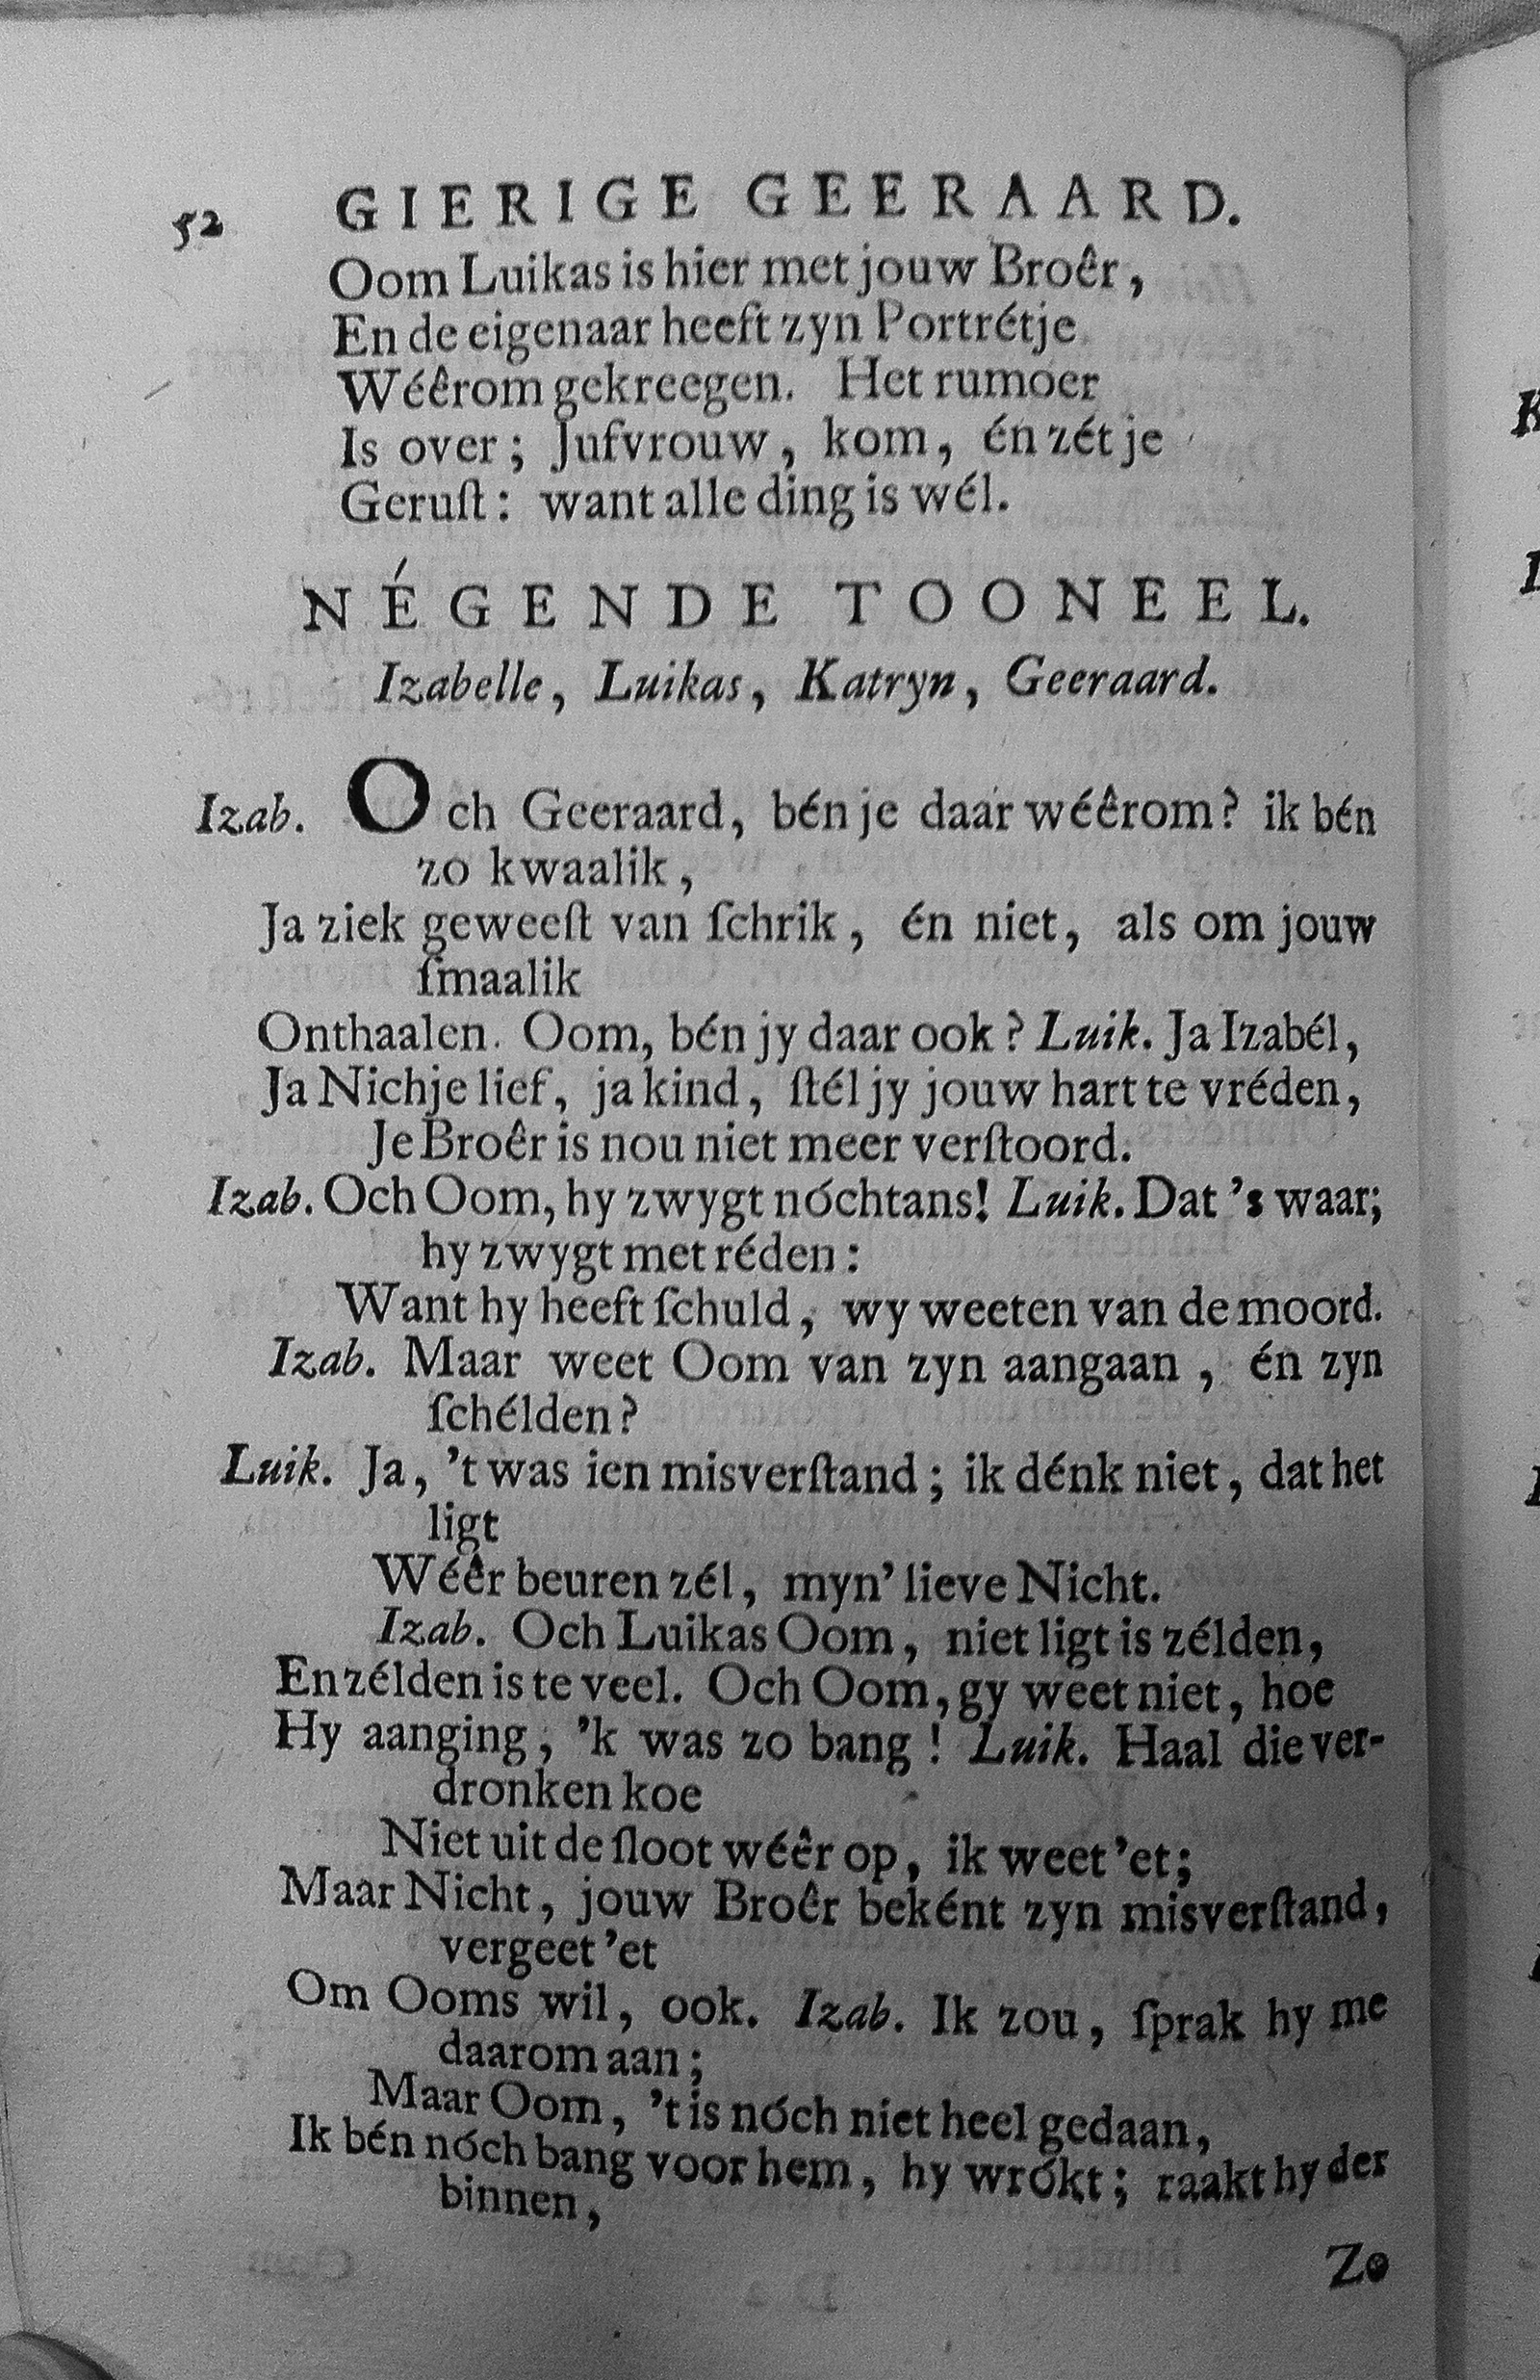 52 GIERIGE GEERAARD.
Oom Luikas is hier met jouw Broêr,
En de eigenaar heeft zyn Portrétje
Wéêrom gekreegen. Het rumoer
Is over; Jufvrouw, kom, én zét je
Geruſt: want alle ding is wél.
NÉGENDE TOONEEL.
Izabelle, Luikas, Katryn, Geeraard.
Izab. Och Geeraard, bén je daar wéêrom? ik bén
zo kwaalik,
Ja ziek geweeſt van ſchrik, én niet, als om jouw
ſmaalik
Onthaalen. Oom, bén jy daar ook? Luik. Ja Izabél,
Ja Nichje lief, ja kind, ſtél jy jouw hart te vréden,
Je Broêr is nou niet meer verſtoord.
Izab. Och Oom, hy zwygt nóchtans! Luik. Dat 's waar;
hy zwygt met réden:
Want hy heeft ſchuld, wy weeten van de moord.
Izab. Maar weet Oom van zyn aangaan, én zyn
ſchélden?
Luik. Ja, 't was ien misverſtand; ik dénk niet, dat het
ligt
Wéêr beuren zél, myn' lieve Nicht.
Izab. Och Luikas Oom, niet ligt is zélden,
En zélden is te veel. Och Oom, gy weet niet, hoe
Hy aanging, 'k was zo bang! Luik. Haal die ver-
dronken koe
Niet uit de ſloot wéêr op, ik weet 'et;
Maar Nicht, jouw Broêr beként zyn misverſtand,
vergeet 'et
Om Ooms wil, ook. Izab. Ik zou, ſprak hy me
daarom aan;
Maar Oom, 't is nóch niet heel gedaan,
Ik bén nóch bang voor hem, hy wrókt; raakt hy der
binnen,
Zo